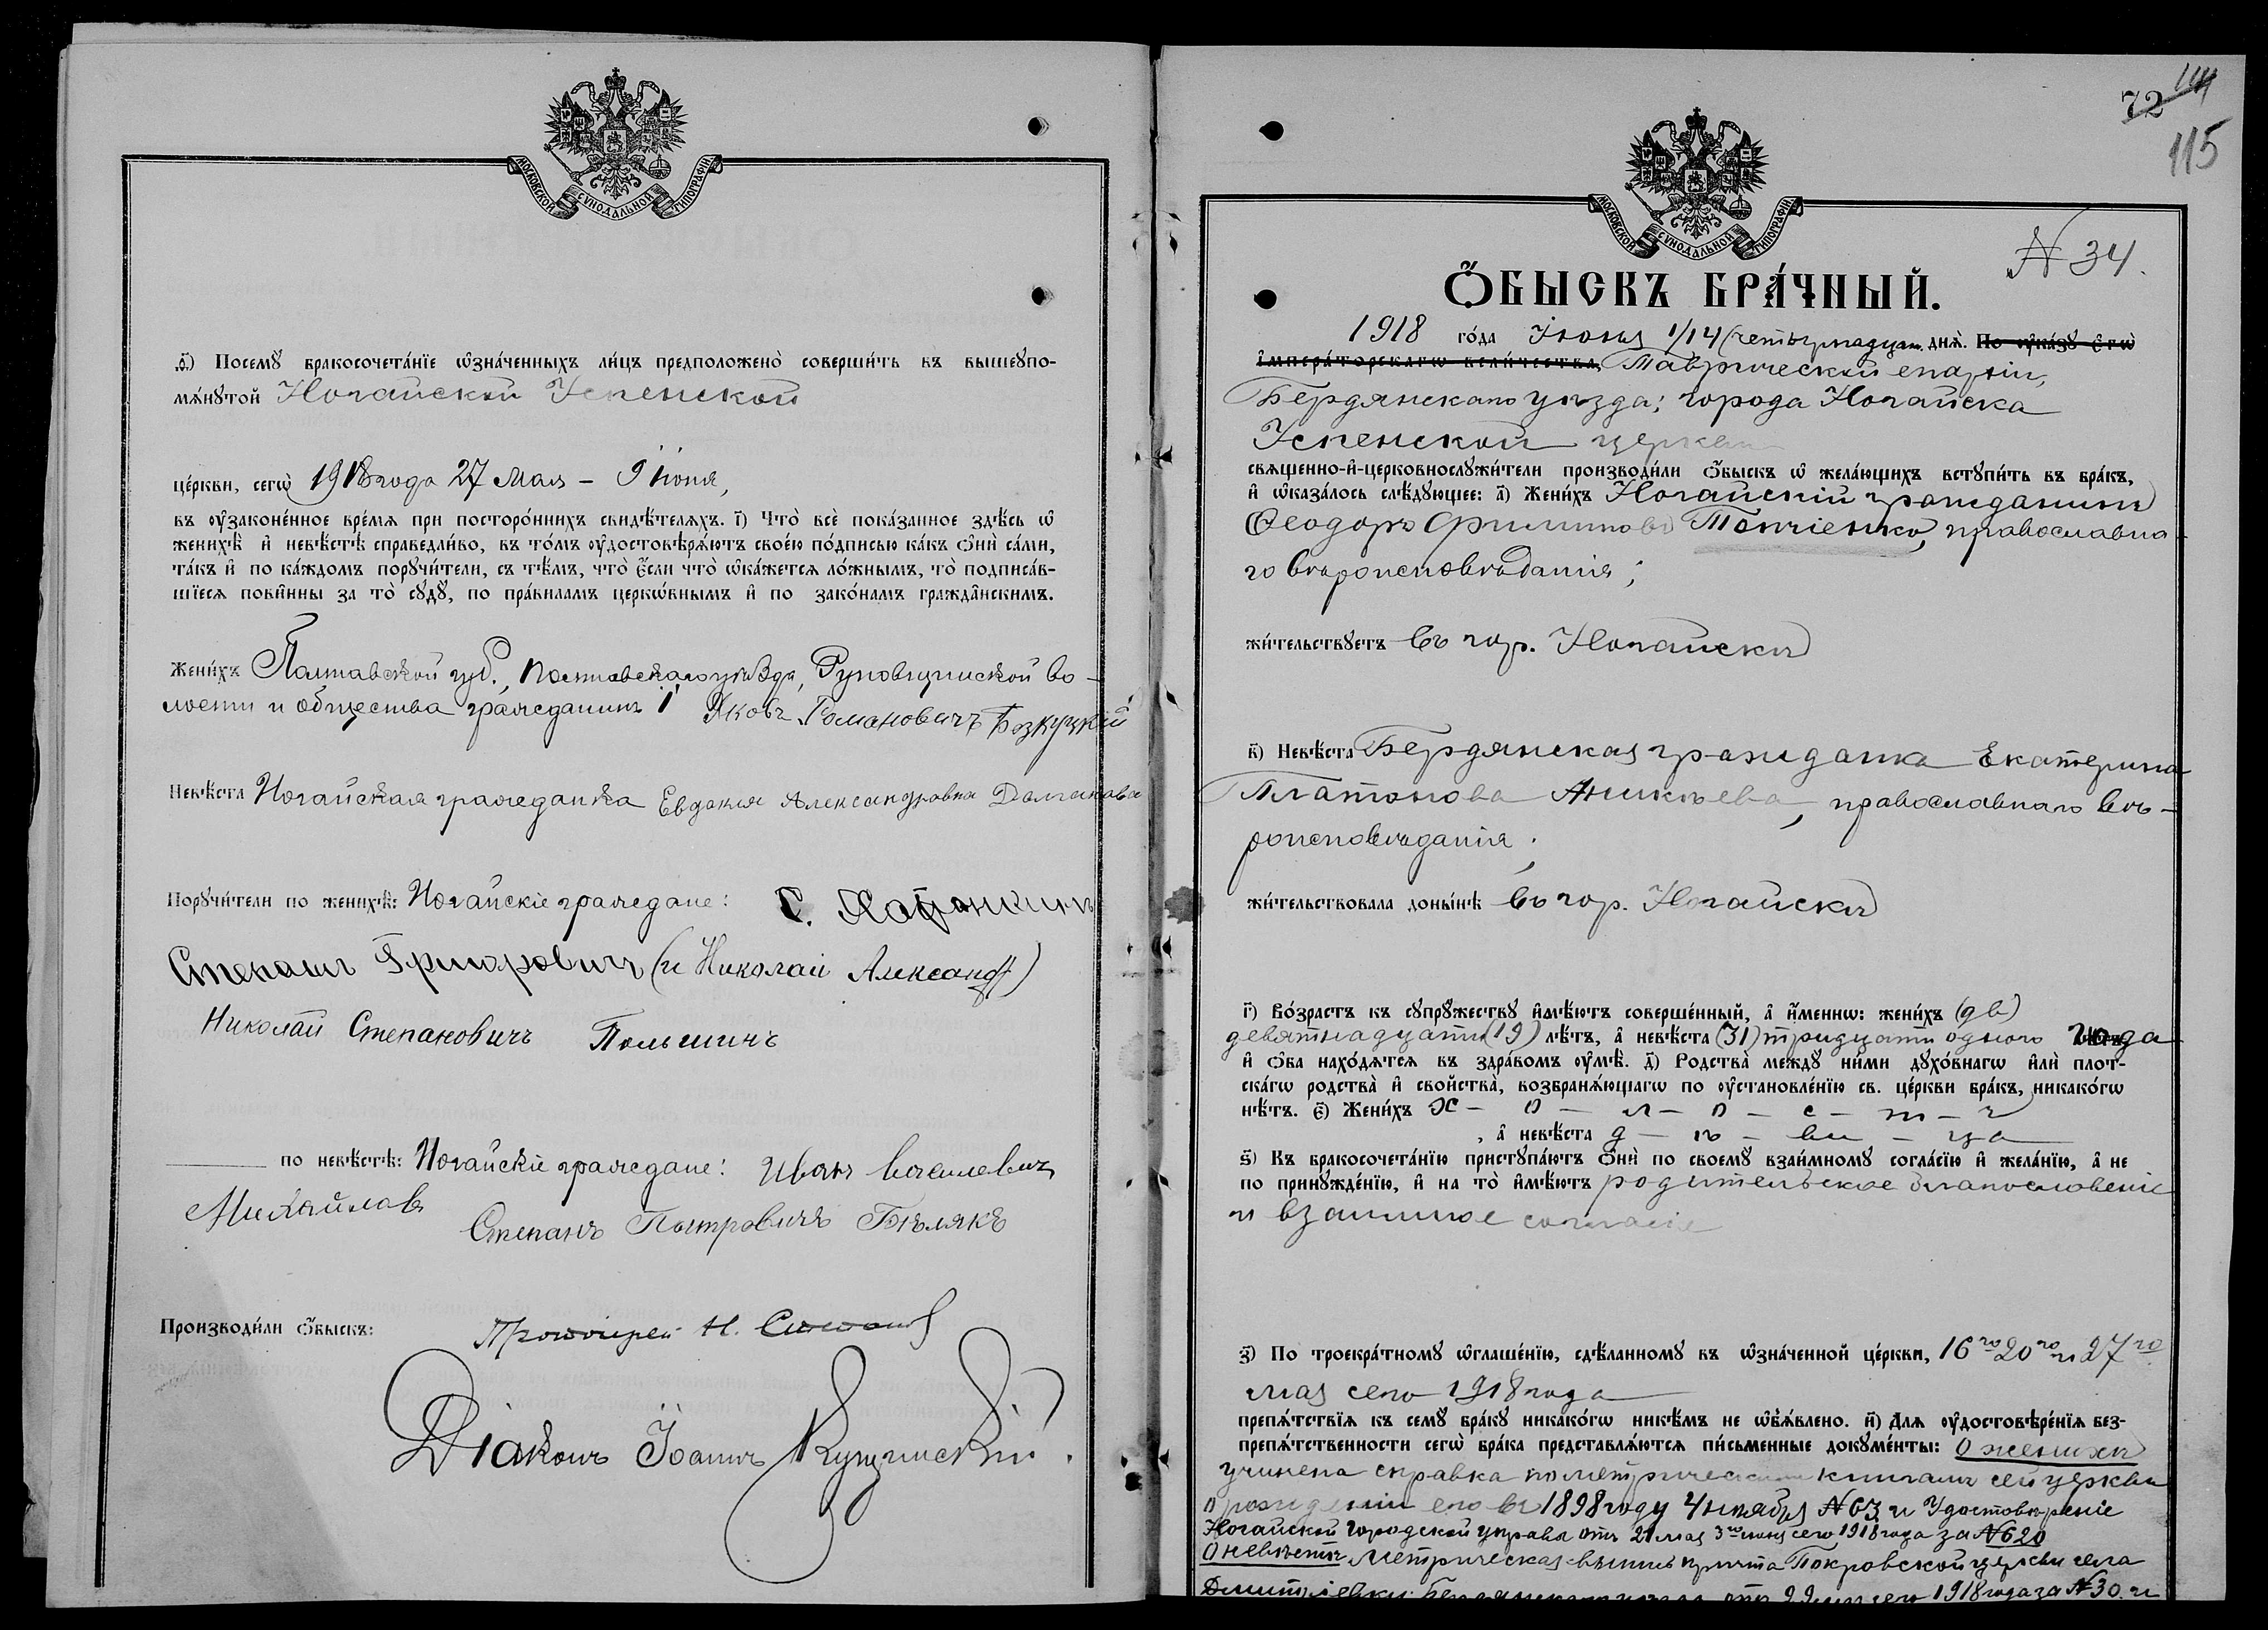 МОСКОВСКОЙ СѴНОДАЛЬНОЙ ТИПОГРАФІИ
ѳ҃) Посемꙋ бракосочета́нїе ѡ҆зна́ченныхъ ли́цъ предположено̀ соверши́ть въ вышеꙋпо-
мѧ́нꙋтой Ногайской Успенской
це́ркви, сегѡ̀ 1918 года 27 Мая – 9 Іюня,
въ ᲂу҆законе́нное вре́мѧ при посторо́ннихъ свидѣ́телѧхъ. і҃) Что̀ всѐ пока́занное здѣ́сь ѡ҆
женихѣ̀ и҆ невѣ́стѣ справедли́во, въ то́мъ ᲂу҆достовѣрѧ́ютъ свое́ю по́дписью ка́къ ѻ҆нѝ са́ми,
та́къ и҆ по ка́ждомъ порꙋчи́тели, съ тѣ́мъ, что̀ є҆́сли что̀ ѡ҆ка́жетсѧ ло́жнымъ, то̀ подписа́в-
шїесѧ пови́нны за то̀ сꙋдꙋ̀, по пра́виламъ церкѡ́внымъ и҆ по зако́намъ гражда̑нскимъ.
Жени́хъ Полтавской губ., Полтавскаго уѣзда, во-
лости и общества гражданинъ Яковъ Романовичъ
Невѣ́ста Ногайская гражданка Евдокия Александровна
Порꙋчи́тели по женихѣ̀: Ногайскіе граждане: С.
Степанъ Григоровичъ (и Николай Александ)
Николай Степановичъ Польшинъ
по невѣ́стѣ: Ногайскіе граждане: Иванъ
Михайлов
Степанъ Петровичъ Бѣлякъ
Производи́ли ѻ҆́быскъ: Протоіерей Н.
Діаконъ Іоаннъ
72 114
115
МОСКОВСКОЙ СѴНОДАЛЬНОЙ ТИПОГРАФІИ
N 34.
Ѻ҆́БЫСКЪ БРА́ЧНЫЙ.
1918 го́да Іюня 1/14 (четырнадцат. днѧ̀. По ᲂу҆ка́зꙋ є҆гѡ̀
і҆мпера́торскагѡ вели́чества, Таврической епархіи,
Бердянскаго уѣзда; города Ногайска
Успенской церкви
свѧще́нно-и҆-церковнослꙋжи́тели производи́ли ѻ҆́быскъ ѡ҆ жела́ющихъ встꙋпи́ть въ бра́къ,
и҆ ѡ҆каза́лось слѣ́дꙋющее: а҃) Жени́хъ Ногайскій гражданинъ
Ѳеодоръ Филипповъ Топчіенко, православна-
го вѣроисповѣданія;
жи́тельствꙋетъ въ гор. Ногайскѣ
в҃) Невѣ́ста Бердянская гражданка Екатерина
Платонова Аникѣева, православнаго вѣ-
роисповѣданія;
жи́тельствовала доны́нѣ въ гор. Ногайскѣ
г҃) Во́зрастъ къ сꙋпрꙋжествꙋ и҆мѣ́ютъ соверше́нный, а҆ и҆́меннѡ: жени́хъ (дв)
девятнадцати (19) лѣ́тъ, а҆ невѣ́ста (31) тридцати одного года
и҆ ѻ҆́ба нахо́дѧтсѧ въ здра́вомъ ᲂу҆мѣ̀. д҃) Родства̀ междꙋ ни́ми дꙋхо́внагѡ и҆лѝ плот-
ска́гѡ родства̀ и҆ свойства̀, возбранѧ́ющагѡ по ᲂу҆становле́нїю св. це́ркви бра́къ, никако́гѡ
нѣ́тъ. є҃) Жени́хъ х – о – л – о – с – т – ъ
, а҆ невѣ́ста д – ѣ – ви – ца
ѕ҃) Къ бракосочета́нїю пристꙋпа́ютъ ѻ҆нѝ по своемꙋ̀ взаи́мномꙋ согла́сїю и҆ жела́нїю, а҆ не
по принꙋжде́нїю, и҆ на то̀ и҆мѣ́ютъ родительское благословеніе
и взаимное согласіе
з҃) По троекра́тномꙋ ѡ҆глаше́нїю, сдѣ́ланномꙋ въ ѡ҆зна́ченной це́ркви, 16го 20го и 27го
мая сего 1918 года
препѧ́тствїѧ къ семꙋ̀ бра́кꙋ никако́гѡ никѣ́мъ не ѡ҆бъѧ́влено. и҃) Длѧ ᲂу҆достовѣре́нїѧ без-
препѧ́тственности сегѡ̀ бра́ка представлѧ́ютсѧ пи́сьменные докꙋме́нты: О женихѣ
учинена справка по метрическимъ книгамъ сей церкви
о рожденіи его въ 1898 году N 63 и Удостовѣреніе
Ногайской Городской управы отъ 21 мая 3го іюня сего 1918 года за N 620
О невѣстѣ метрическая выпись причта Покровской церкви села
отъ 22 мая сего 1918 года за N 30 и